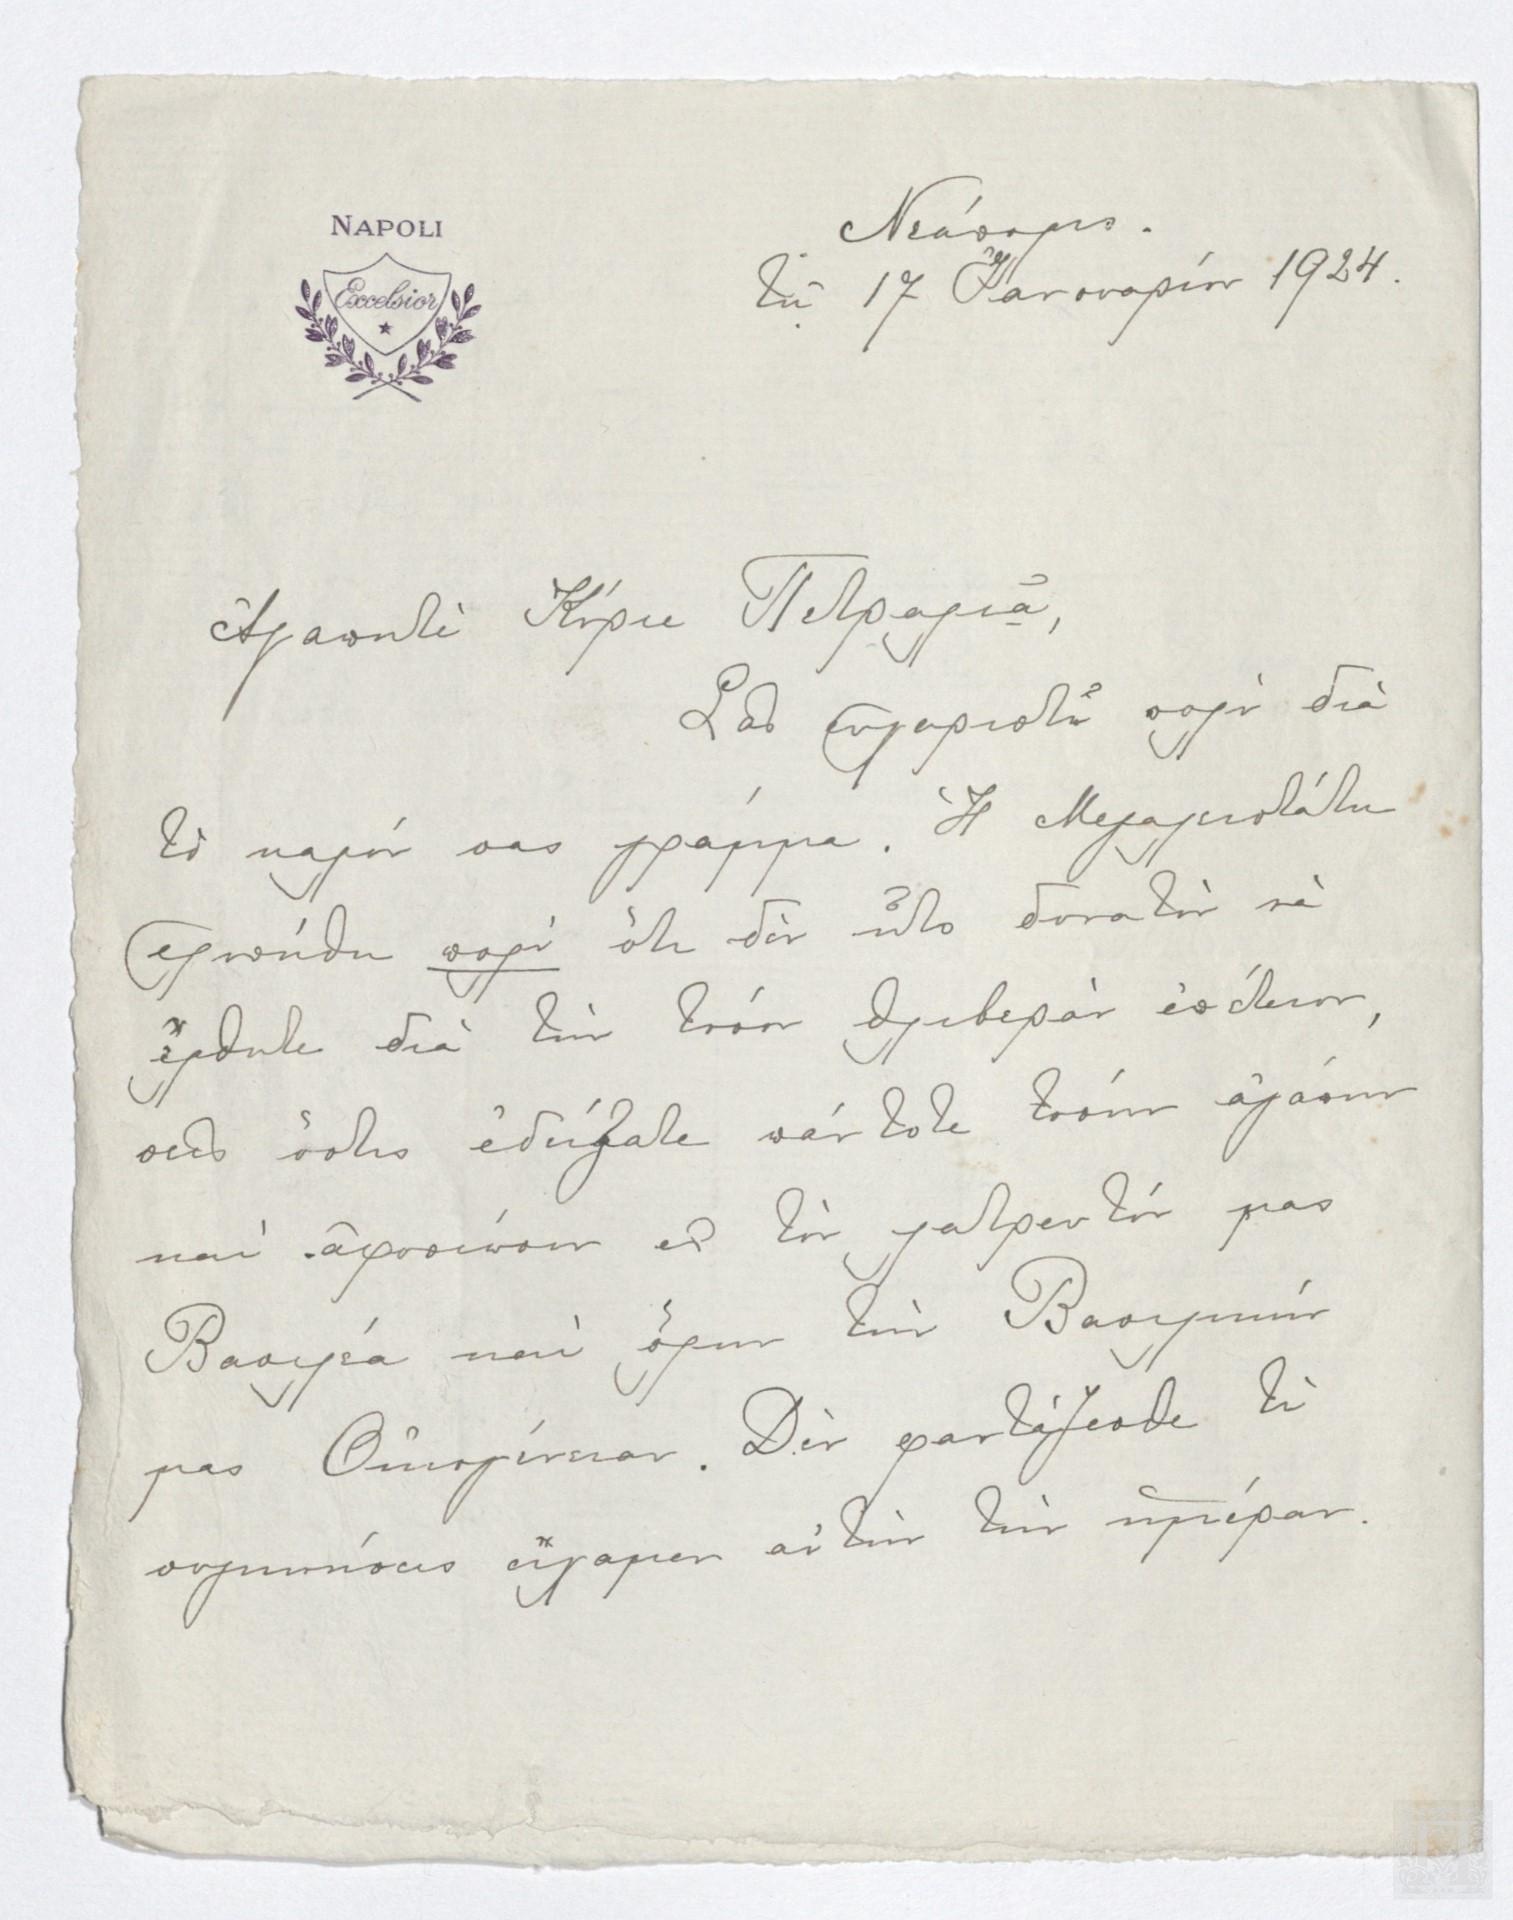 NAPOLI
Excelsior
Νεάπολις.
τῇ 17 Ἰανουαρίου 1924.
Ἀγαπητὲ Κύριε Πετραλιᾶ,
Σᾶς εὐχαριστῶ πολὺ διὰ
τὸ καλόν σας γράμμα. Ἡ Μεγαλειοτάτη
ἐλυπήθη πολὺ ὅτι δὲν ἦτο δυνατὸν νὰ
ἔλθητε διὰ τὴν τόσον θλιβερὰν ἐπέτειον,
σεῖς ὅστις ἐδείξατε πάντοτε τόσην ἀγάπην
καὶ ἀφοσίωσιν εἰς τὸν λατρευτόν μας
Βασιλέα καὶ ὅλην τὴν Βασιλικήν
μας Οἰκογένειαν. Δὲν φαντάζεσθε τὶ
συγκινήσεις εἴχαμεν αὐτὴν τὴν ἡμέραν.